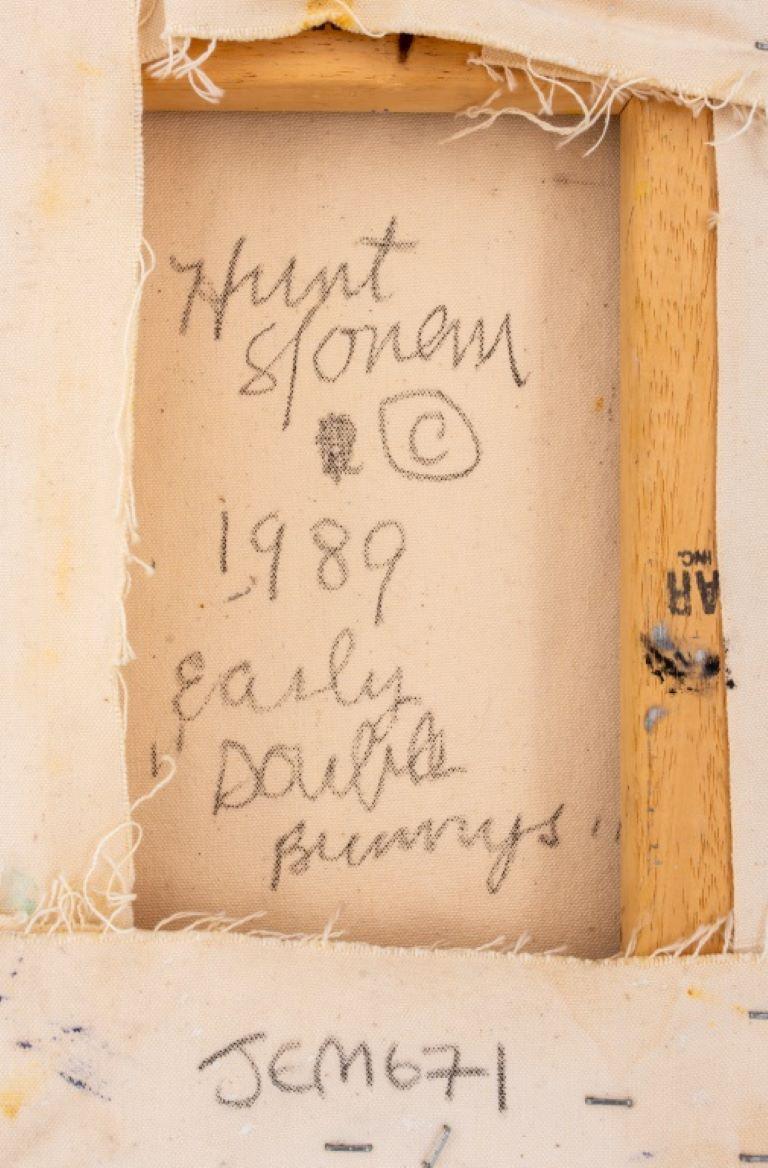 Hunt
Slonem
©
1989
Early
"Double
Bunnys"
AR
INC.
JEM671